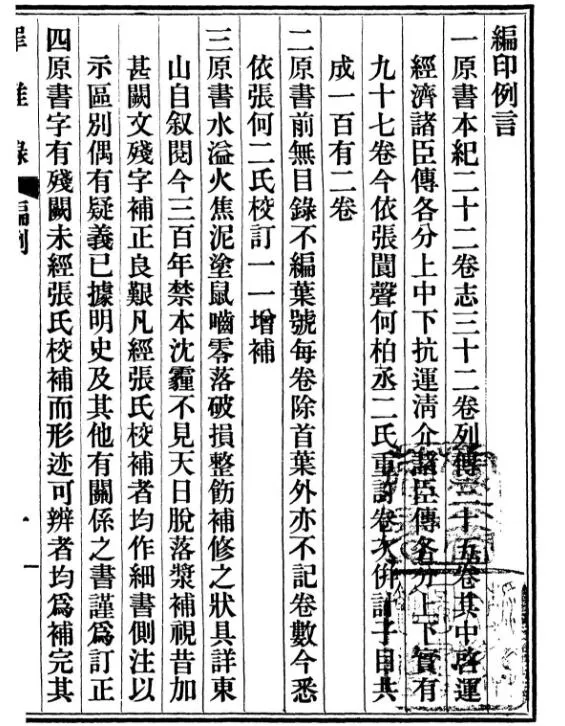 編印例言
一原書本紀二十二卷志三十二卷列傳三十五卷其中啓運
經濟諸臣傳各分上中下抗運淸介諸臣傳各分上下實有
九十七卷今依張閬聲何柏丞二氏重訂卷次倂計子目共
成一百有二卷
二原書前無目錄不編葉號每卷除首葉外亦不記卷數今悉
依張何二氏校訂一一增補
三原書水溢火焦泥塗鼠嚙零落破損整飭補修之狀具詳東
山自叙閱今三百年禁本沈霾不見天日脫落漿補視昔加
甚闕文殘字補正良艱凡經張氏校補者均作細書側注以
示區別偶有疑義已據明史及其他有關係之書謹爲訂正
四原書字有殘闕未經張氏校補而形迹可辨者均爲補完其
罪惟錄 編例 一